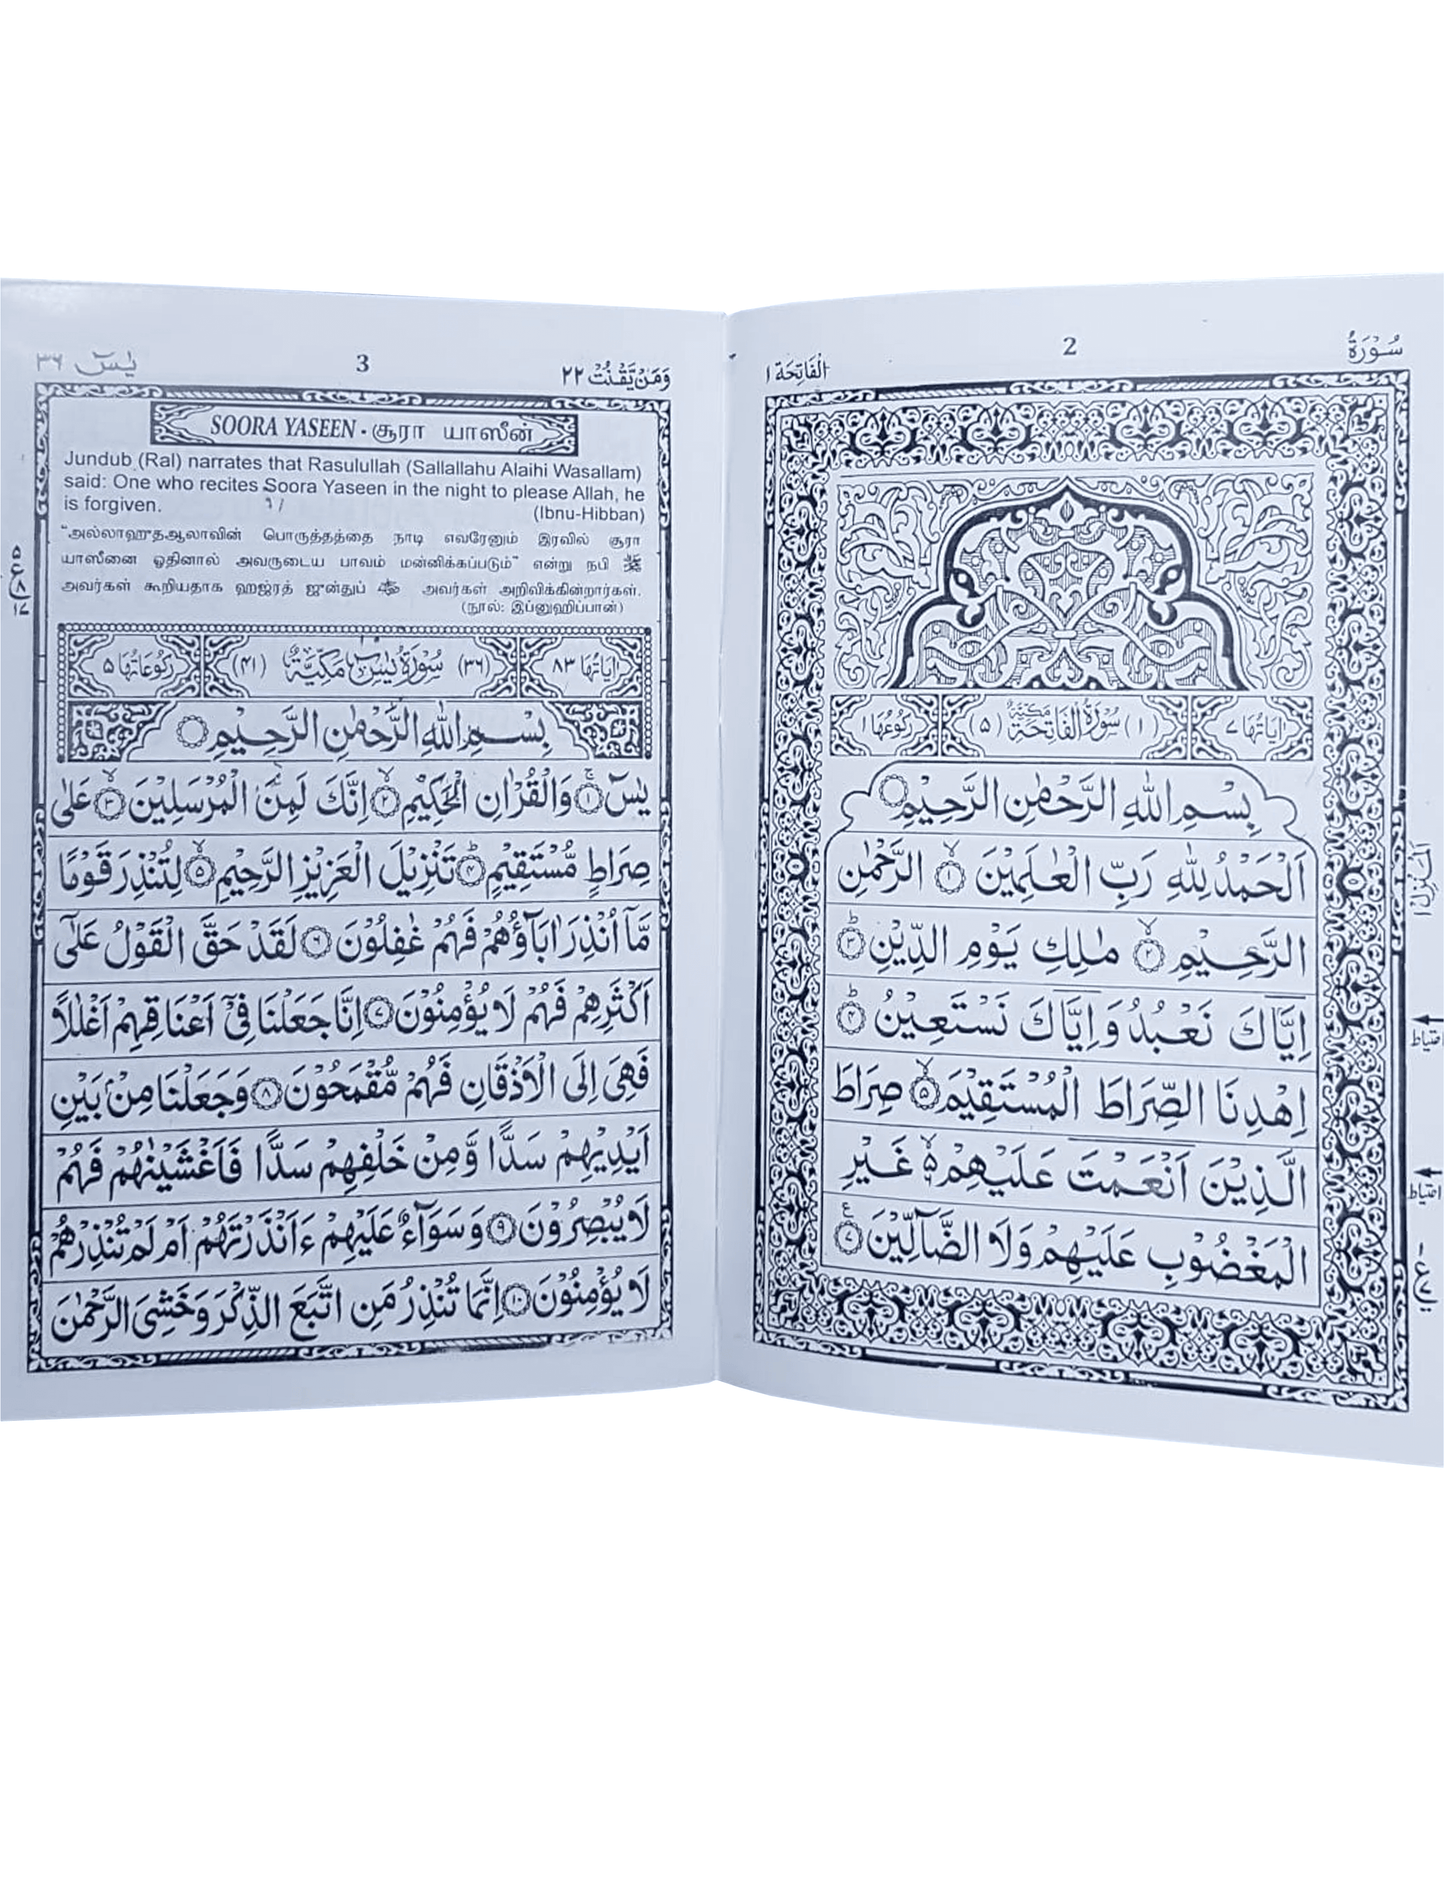 سُوْرَةُ
2
الْفَاتِحَة ١
اٰيَاتُهَا ٧
(١) سُوْرَةُ الْفَاتِحَةِ مَكِّيَّةٌ (٥)
رُكُوْعُهَا ١
بِسْمِ اللّٰهِ الرَّحْمٰنِ الرَّحِيْمِ
اَلْحَمْدُ لِلّٰهِ رَبِّ الْعٰلَمِيْنَ ۙ﴿١﴾ الرَّحْمٰنِ
الرَّحِيْمِ ۙ﴿٢﴾ مٰلِكِ يَوْمِ الدِّيْنِ ؕ﴿٣﴾
اِيَّاكَ نَعْبُدُ وَاِيَّاكَ نَسْتَعِيْنُ ؕ﴿٤﴾
اِهْدِنَا الصِّرَاطَ الْمُسْتَقِيْمَ ۙ﴿٥﴾ صِرَاطَ
الَّذِيْنَ اَنْعَمْتَ عَلَيْهِمْ ۙ۵ غَيْرِ
الْمَغْضُوْبِ عَلَيْهِمْ وَلَا الضَّآلِّيْنَ ﴿٧﴾ ع
اَلْمَنْزِل ١
احتياط
احتياط
وَمَنْ يَّقْنُتْ ٢٢
3
يٰسٓ ٣٦
SOORA YASEEN - சூரா யாஸீன்
Jundub (Ral) narrates that Rasulullah (Sallallahu Alaihi Wasallam)
said: One who recites Soora Yaseen in the night to please Allah, he
is forgiven. (Ibnu-Hibban)
"அல்லாஹுதஆலாவின் பொருத்தத்தை நாடி எவரேனும் இரவில் சூரா
யாஸீனை ஓதினால் அவருடைய பாவம் மன்னிக்கப்படும்" என்று நபி ﷺ
அவர்கள் கூறியதாக ஹஜ்ரத் ஜுன்துப் அவர்கள் அறிவிக்கின்றார்கள்.
(நூல்: இப்னுஹிப்பான்)
اٰيَاتُهَا ٨٣
(٣٦) سُوْرَةُ يٰسٓ مَكِّيَّةٌ (٤١)
رُكُوْعَاتُهَا ٥
بِسْمِ اللّٰهِ الرَّحْمٰنِ الرَّحِيْمِ
يٰسٓ ۚ﴿١﴾ وَالْقُرْاٰنِ الْحَكِيْمِ ۙ﴿٢﴾ اِنَّكَ لَمِنَ الْمُرْسَلِيْنَ ۙ﴿٣﴾ عَلٰى
صِرَاطٍ مُّسْتَقِيْمٍ ؕ﴿٤﴾ تَنْزِيْلَ الْعَزِيْزِ الرَّحِيْمِ ۙ﴿٥﴾ لِتُنْذِرَ قَوْمًا
مَّآ اُنْذِرَ اٰبَآؤُهُمْ فَهُمْ غٰفِلُوْنَ ﴿٦﴾ لَقَدْ حَقَّ الْقَوْلُ عَلٰٓى
اَكْثَرِهِمْ فَهُمْ لَا يُؤْمِنُوْنَ ﴿٧﴾ اِنَّا جَعَلْنَا فِيْٓ اَعْنَاقِهِمْ اَغْلٰلًا
فَهِىَ اِلَى الْاَذْقَانِ فَهُمْ مُّقْمَحُوْنَ ﴿٨﴾ وَجَعَلْنَا مِنْۢ بَيْنِ
اَيْدِيْهِمْ سَدًّا وَّمِنْ خَلْفِهِمْ سَدًّا فَاَغْشَيْنٰهُمْ فَهُمْ
لَا يُبْصِرُوْنَ ﴿٩﴾ وَسَوَآءٌ عَلَيْهِمْ ءَاَنْذَرْتَهُمْ اَمْ لَمْ تُنْذِرْهُمْ
لَا يُؤْمِنُوْنَ ﴿١٠﴾ اِنَّمَا تُنْذِرُ مَنِ اتَّبَعَ الذِّكْرَ وَخَشِىَ الرَّحْمٰنَ